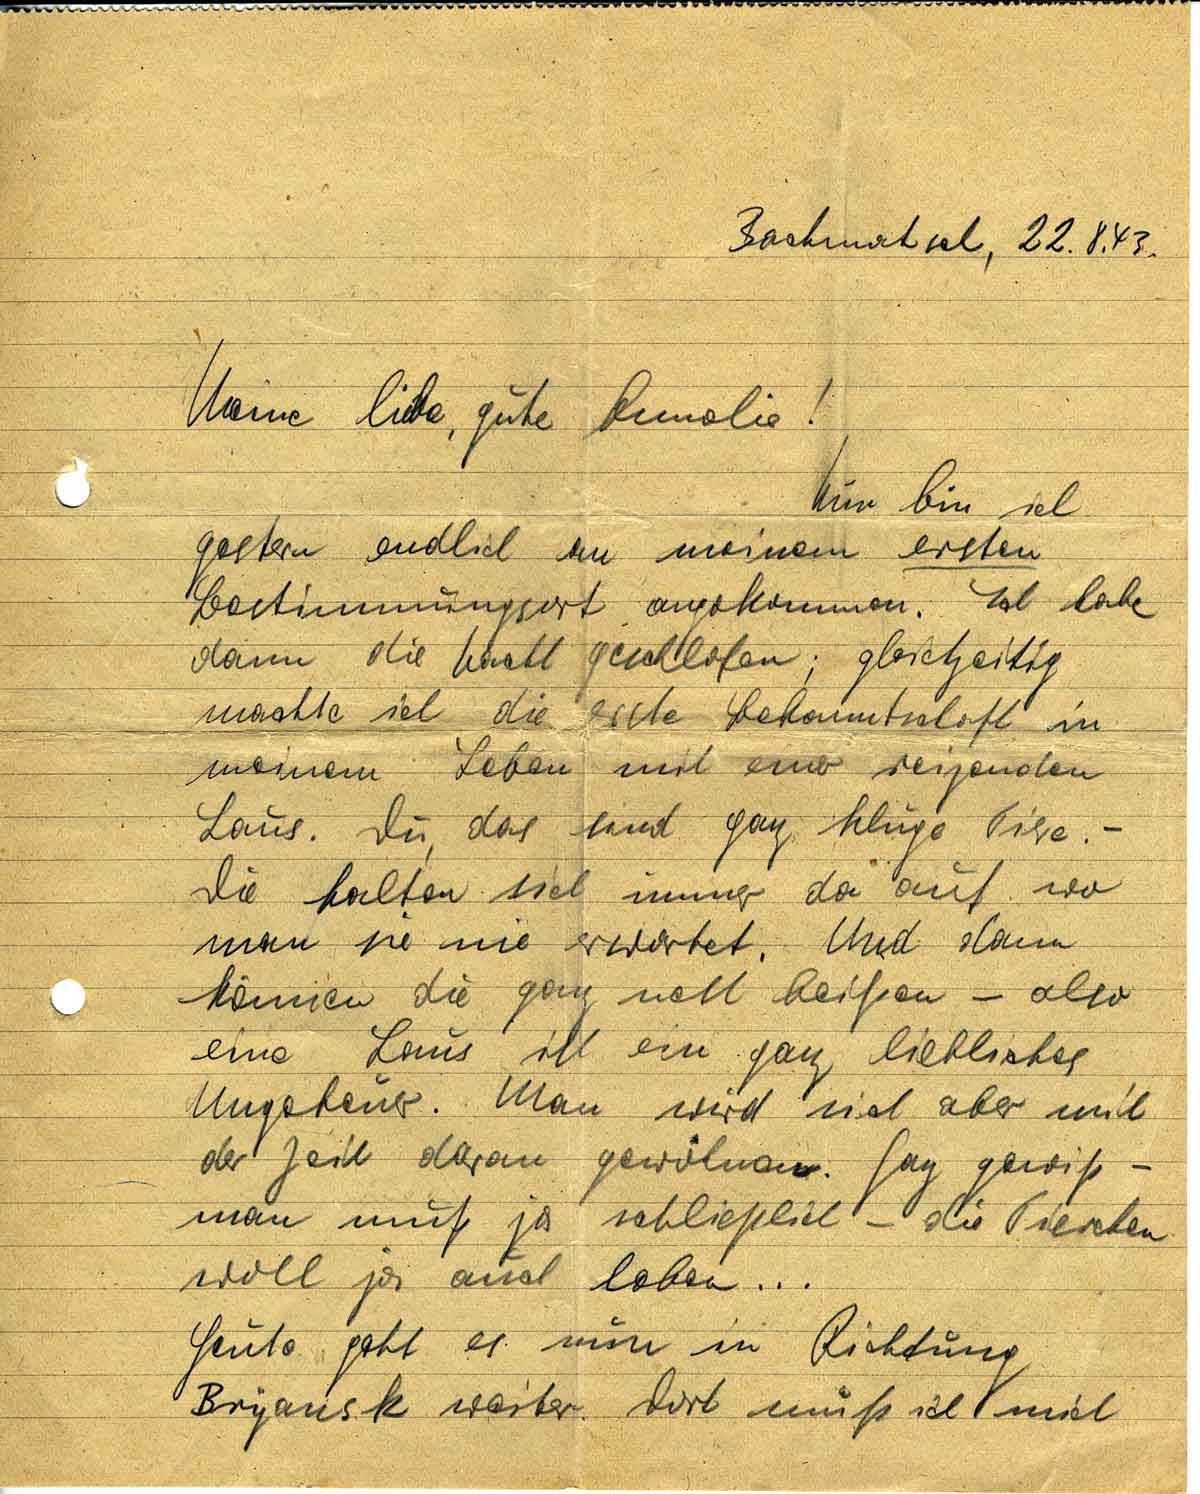 Bachmatsch, 22.8.43.
Meine liebe, gute Annelie!
Nun bin ich
gestern endlich an meinem ersten
Bestimmungsort angekommen. Ich habe
dann die Nacht geschlafen; gleichzeitig
machte ich die erste Bekanntschaft in
meinem Leben mit einer reizenden
Laus. Du, das sind ganz kluge Tiere. -
Die halten sich immer da auf wo
man sie nie erwartet. Und dann
können die ganz nett beißen - also
eine Laus ist ein ganz liebliches
Ungeheuer. Man wird sich aber mit
der Zeit daran gewöhnen. Ganz gewiß -
man muß ja schließlich - die Tierchen
woll ja auch leben...
Heute geht es nun in Richtung
Bryansk weiter. Dort muß ich mich